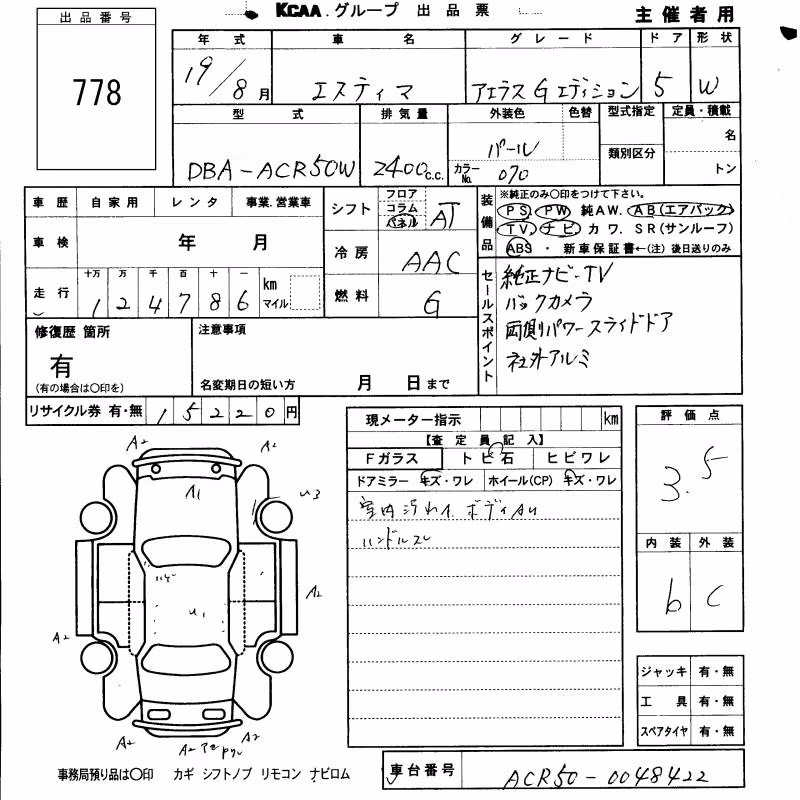 KCAA.グループ 出品票
主催者用
出品番号
778
年式 車名 グレード ドア 形状
19/8月 エスティマ アエラス G エディション 5 W
型式 排気量 外装色 色替 型式指定 定員・積載
DBA-ACR50W 2400c.c. パール
カラーNo. 070
類別区分
名
トン
車歴 自家用 レンタ 事業.営業車
車検 年 月
走行 十万 万 千 百 十 一
1 2 4 7 8 6 km マイル
シフト フロア コラム パネル AT
冷房 AAC
燃料 G
装備品
※純正のみ〇印をつけて下さい。
PS. PW 純AW. AB(エアバック)
TV. ナビ カワ. SR(サンルーフ)
ABS ・ 新車保証書←(注)後日送りのみ
セールスポイント
純正ナビ・TV
バックカメラ
両側パワースライドドア
社外アルミ
修復歴 箇所
有
(有の場合は〇印を)
注意事項
名変期日の短い方 月 日まで
リサイクル券 有・無 15220円
現メーター指示 km
【査定員記入】
Fガラス トビ石 ヒビワレ
ドアミラー キズ・ワレ ホイール(CP) キズ・ワレ
室内汚れ. ボディAU
ハンドルスレ
評価点
3.5
内装 外装
b C
ジャッキ 有・無
工具 有・無
スペアタイヤ 有・無
A2 A2
A1 U3
U1 A2
A2
A2 A2 A2
事務局預り品は〇印 カギ シフトノブ リモコン ナビロム
車台番号 ACR50-0048422